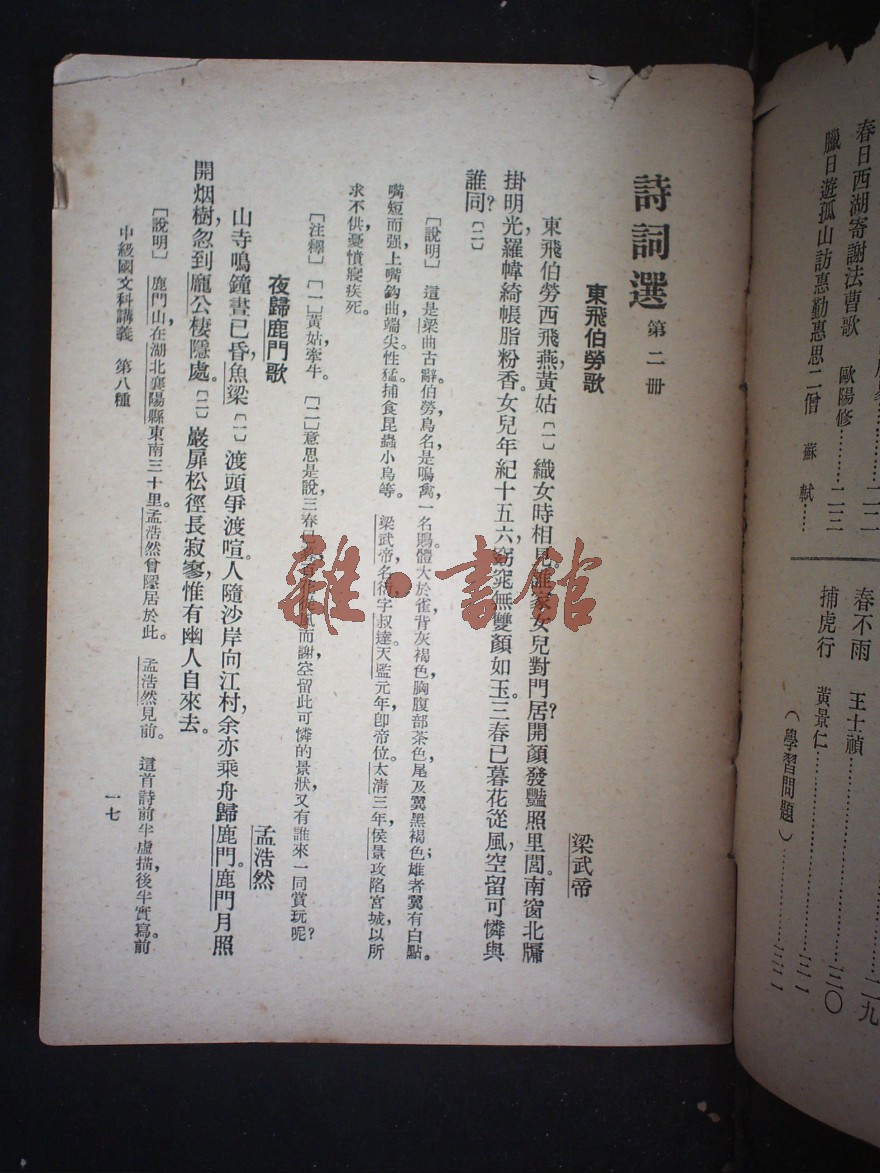 春日西湖寄謝法曹歌 歐陽修……二二
臘日遊孤山訪惠勤惠思二僧 蘇軾……
春不雨 王士禎……二九
捕虎行 黃景仁……三〇
（學習問題）……三二
詩詞選 第二册
東飛伯勞歌 梁武帝
東飛伯勞西飛燕，黃姑〔一〕織女時相見。誰家女兒對門居？開顏發豔照里閭。南窗北牖
掛明光，羅幃綺帳脂粉香。女兒年紀十五六，窈窕無雙顏如玉。三春已暮花從風，空留可憐與
誰同？〔二〕
［說明］ 這是梁曲古辭。伯勞，鳥名，是鳴禽，一名鵙。體大於雀，背灰褐色，胸腹部茶色，尾及翼黑褐色；雄者翼有白點。
嘴短而强，上嘴鈎曲，端尖。性猛，捕食昆蟲小鳥等。 梁武帝名衍，字叔達。天監元年，卽帝位。太清三年，侯景攻陷宮城，以所
求不供，憂憤寢疾死。
［注釋］ ［一］黃姑，牽牛。 ［二］意思是說，三春風而謝，空留此可憐的景狀，又有誰來一同賞玩呢？
夜歸鹿門歌 孟浩然
山寺鳴鐘晝已昏，魚梁〔一〕渡頭爭渡喧。人隨沙岸向江村，余亦乘舟歸鹿門。鹿門月照
開烟樹，忽到龐公棲隱處。〔二〕巖扉松徑長寂寥，惟有幽人自來去。
［說明］ 鹿門山在湖北襄陽縣東南三十里。孟浩然曾隱居於此。 孟浩然見前。 這首詩前半虛描，後半實寫。前
中級國文科講義 第八種 一七
雜·書館